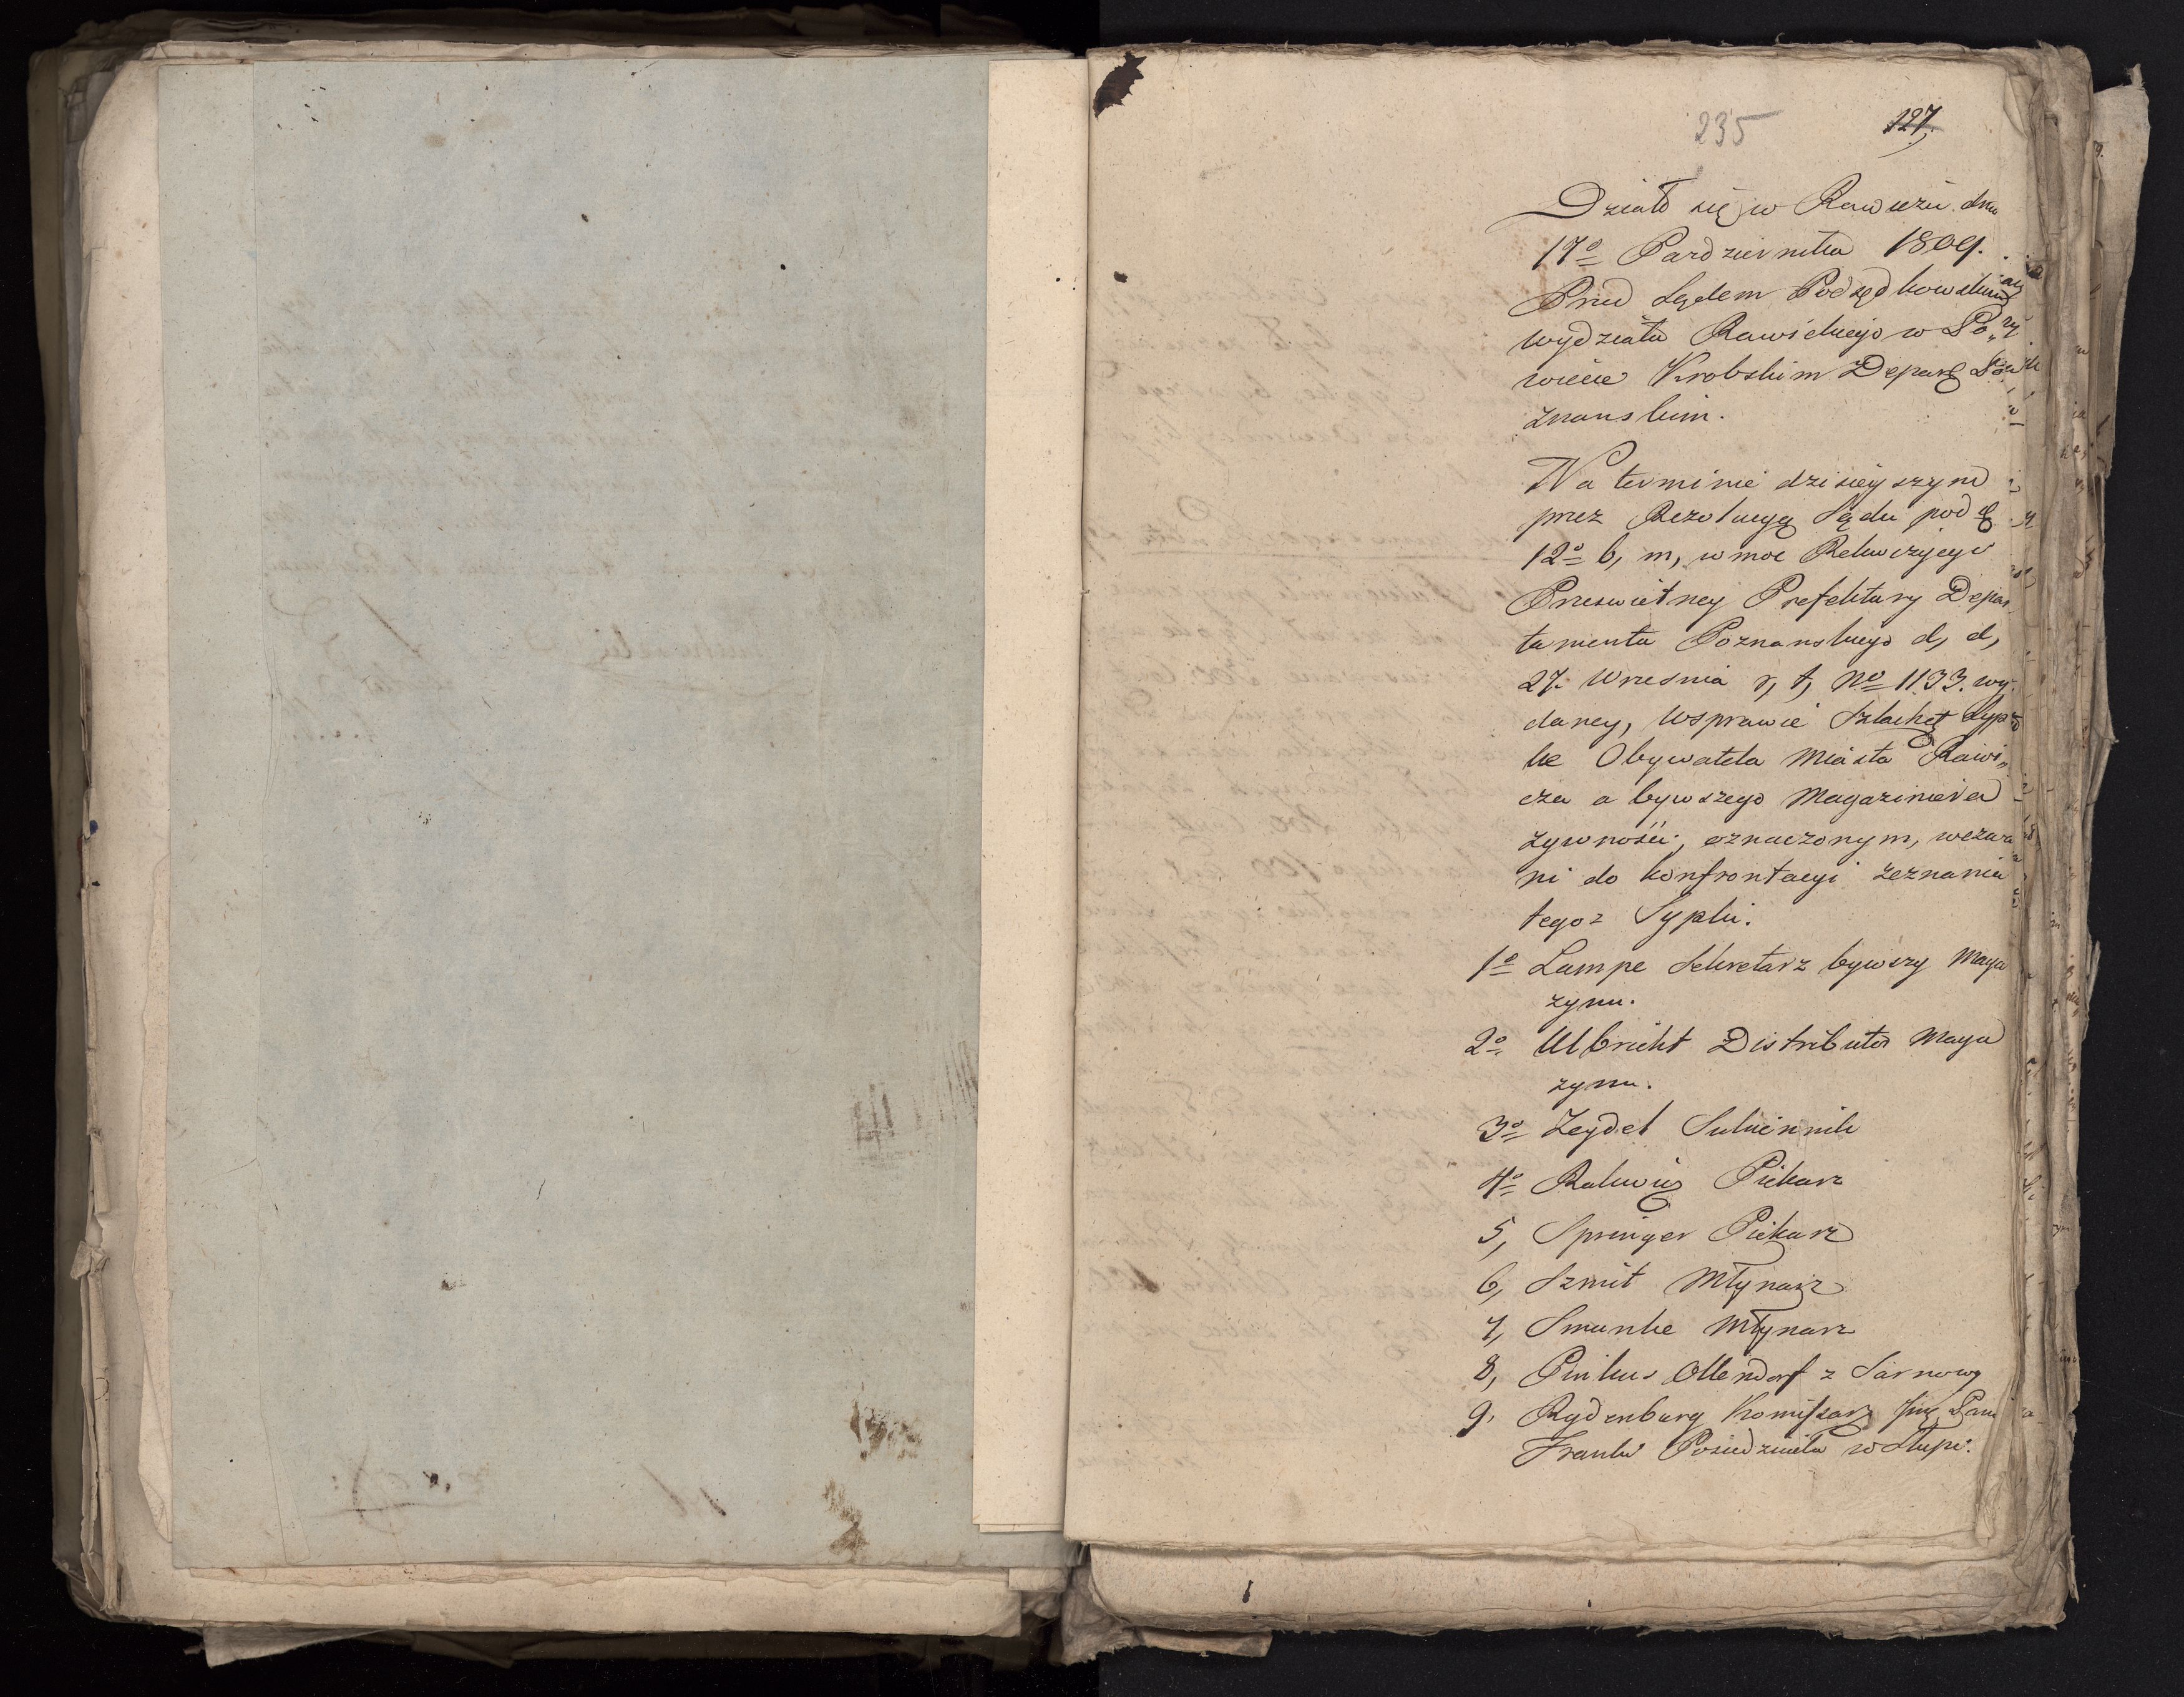 235
127.
Dział się w Rawiczu dnia
17º Pazdziernika 1809.
Przed Sądem Podsędkowskim
wydziału Rawickiego w Po„
wiecie Krobskim Depart Po„
znanskim.
Na terminie dzisieyszym
przez Rezolucyą Sądu pod d
12º b, m, w moc Rekwizycyi
Prześwietney Prefektury Depar
tamentu Poznanskiego d, d,
27. Wrzesnia r, t, Nº 1133. wy
daney, w sprawie Szlachet Syp
ke Obywatela Miasta Rawi„
cza a bywszego Magaziniera
zywności, oznaczonym, wezwa
ni do konfrontacyi zeznania
tegoz Sypki.
1º Lampe Sekretarz bywszy Maga
zynu.
2º Ulbricht Distributor Maga
zynu.
3º Zeydel Sukiennik
4º Rakwiz Piekarz
5, Springer Piekarz
6, Szmit Młynarz
7, Smanke Młynarz
8, Pinkus Ollendorf z Sarnowy
9, Rydzenburg Komissarz Jmc Pani
Franke Posiedziciela w Słupi.